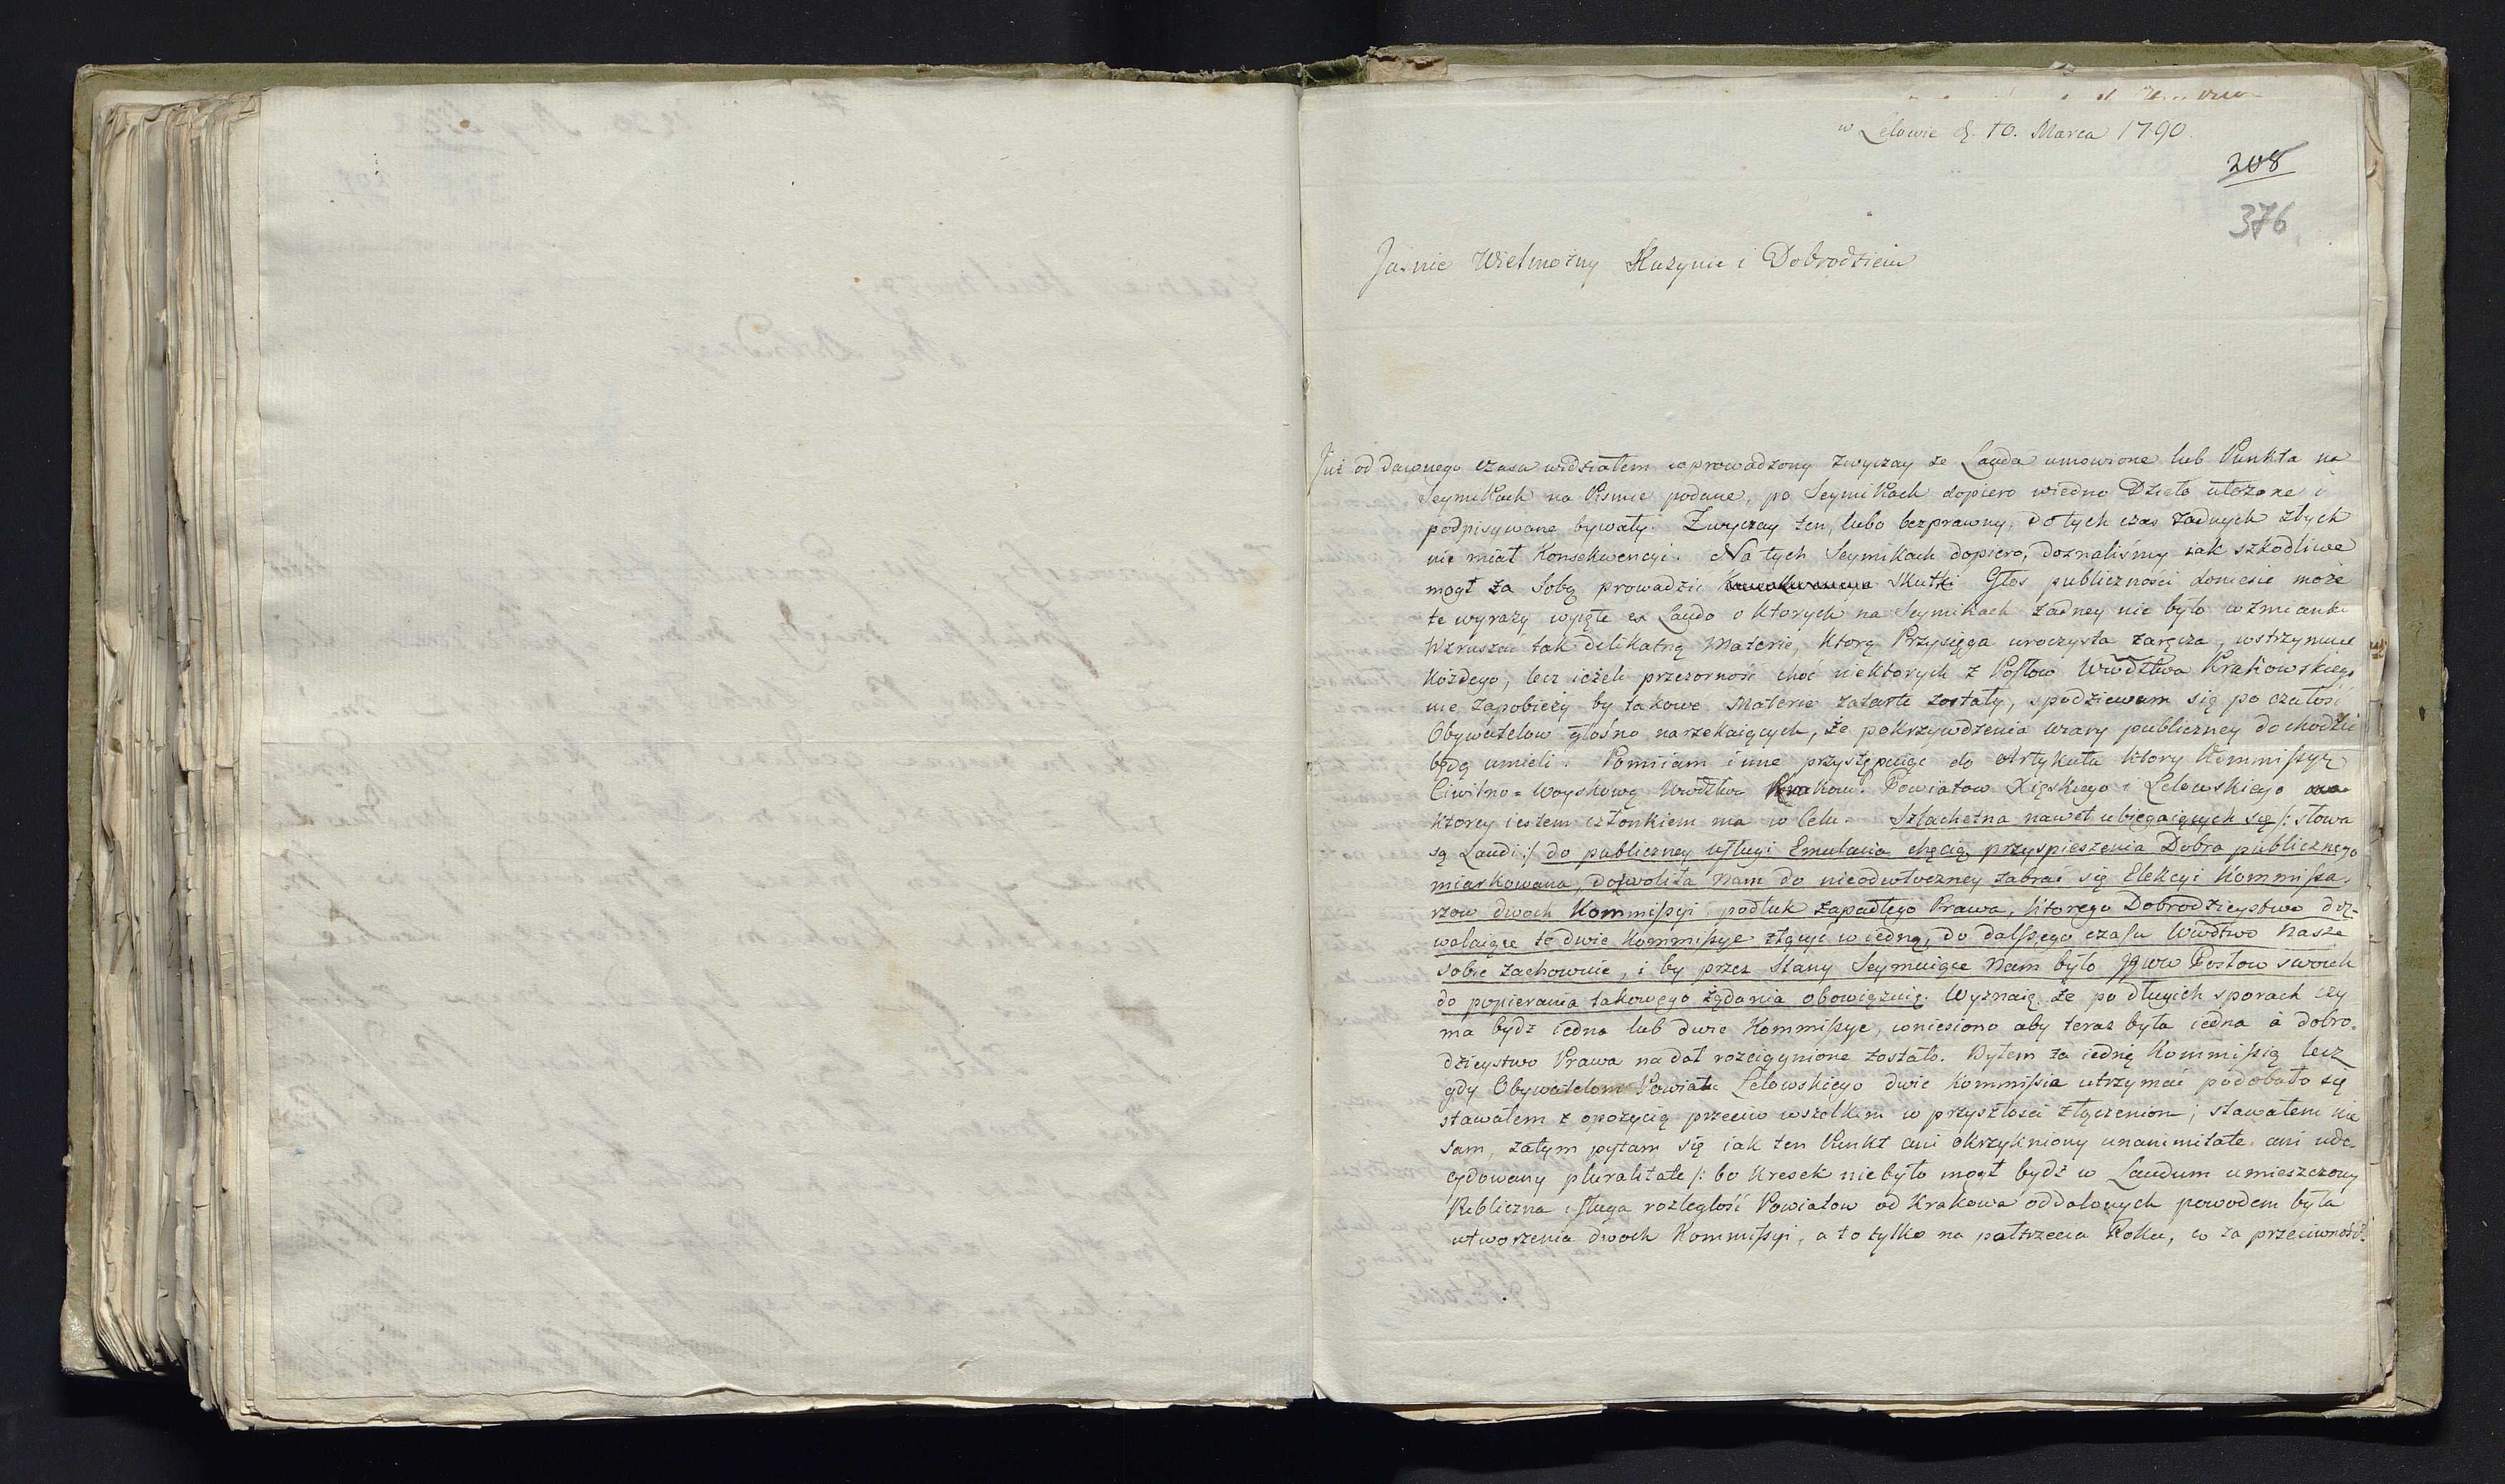 w Lelowie d. 10. Marca 1790.
208
376
Jaśnie Wielmożny Kuzynie i Dobrodzieiu
Już od dawnego czasu widziałem wprowadzony zwyczay że Lauda umowione lub Punkta na
Seymikach na Pismie podane, po Seymikach dopiero wiedno Dzieło ułożone i
podpisywane bywały. Zwyczay ten, lubo bezprawny, dotych czas żadnych złych
nie miał Konsekwencyi. Na tych Seymikach dopiero, doznaliśmy iak szkodliwe
mogł za Sobą prowadzić skutki Głos publiczności doniesie może
te wyrazy wyięte ex Laudo o ktorych na Seymikach żadney nie było wzmianki
Wzruszać tak delikatną Materię, ktorą Przysięga uroczysta zaręcza, wstrzymuie
każdego, lecz ieżeli przezorność choć niektorych z Posłow Wwdztwa Krakowskiego
nie zapobieży by takowe Materie zatarte zostały, spodziewam się po czałości
Obywatelow głośno narzekaiących, że pokrzywdzenia wiary publiczney dochodzić
będą umieli. Pomiiam inne przystępuię do Artykułu ktory Kommissyą
Ciwilno-Woyskową Wwdztwa Krakow. Powiatow Xiąskiego i Lelowskiego
ktorey iestem członkiem ma w Celu. Szlachetna nawet ubiegaiących się /: słowa
są Laudi :/ do publiczney usługi Emulacia chęcią przyspieszenia Dobra publicznego
miarkowana, dozwoliła Nam do nieodwłoczney zabrać się Elekcyi Kommissa-
rzow dwoch Kommissyi podłuk zapadłego Prawa, ktorego Dobrodzieystwo doz-
walaiące te dwie Kommissye złączyć w iedną, do dalszego czasu Wwdztwo Nasze
sobie zachowuie, i by przez Stany Seymuiące Nam było Posłow swoich
do popierania takowego żądania obowiązuię. Wyznaię że po długich sporach czy
ma bydz iedna lub dwie Kommissye, wniesiono aby teraz była iedna à dobro-
dzieystwo Prawa nadal rozciągnione zostało. Byłem za iedną Kommissią lecz
gdy Obywatelom Powiatu Lelowskiego dwie Kommissia utrzymać podobało się
stawałem z opozycią przeciw wszelkim w przyszłości złączeniom; stawałem nie
sam, zatym pytam się iak ten Punkt ani okrzykniony unanimitate ani ude-
cydowany pluralitate /: bo kresek niebyło mogł bydź w Laudum umieszczony
Publiczna usługa rozległość Powiatow od Krakowa oddalonych powodem była
utworzenia dwoch Kommissyi, a to tylko na połtrzecia Roku, co za przeciwność?